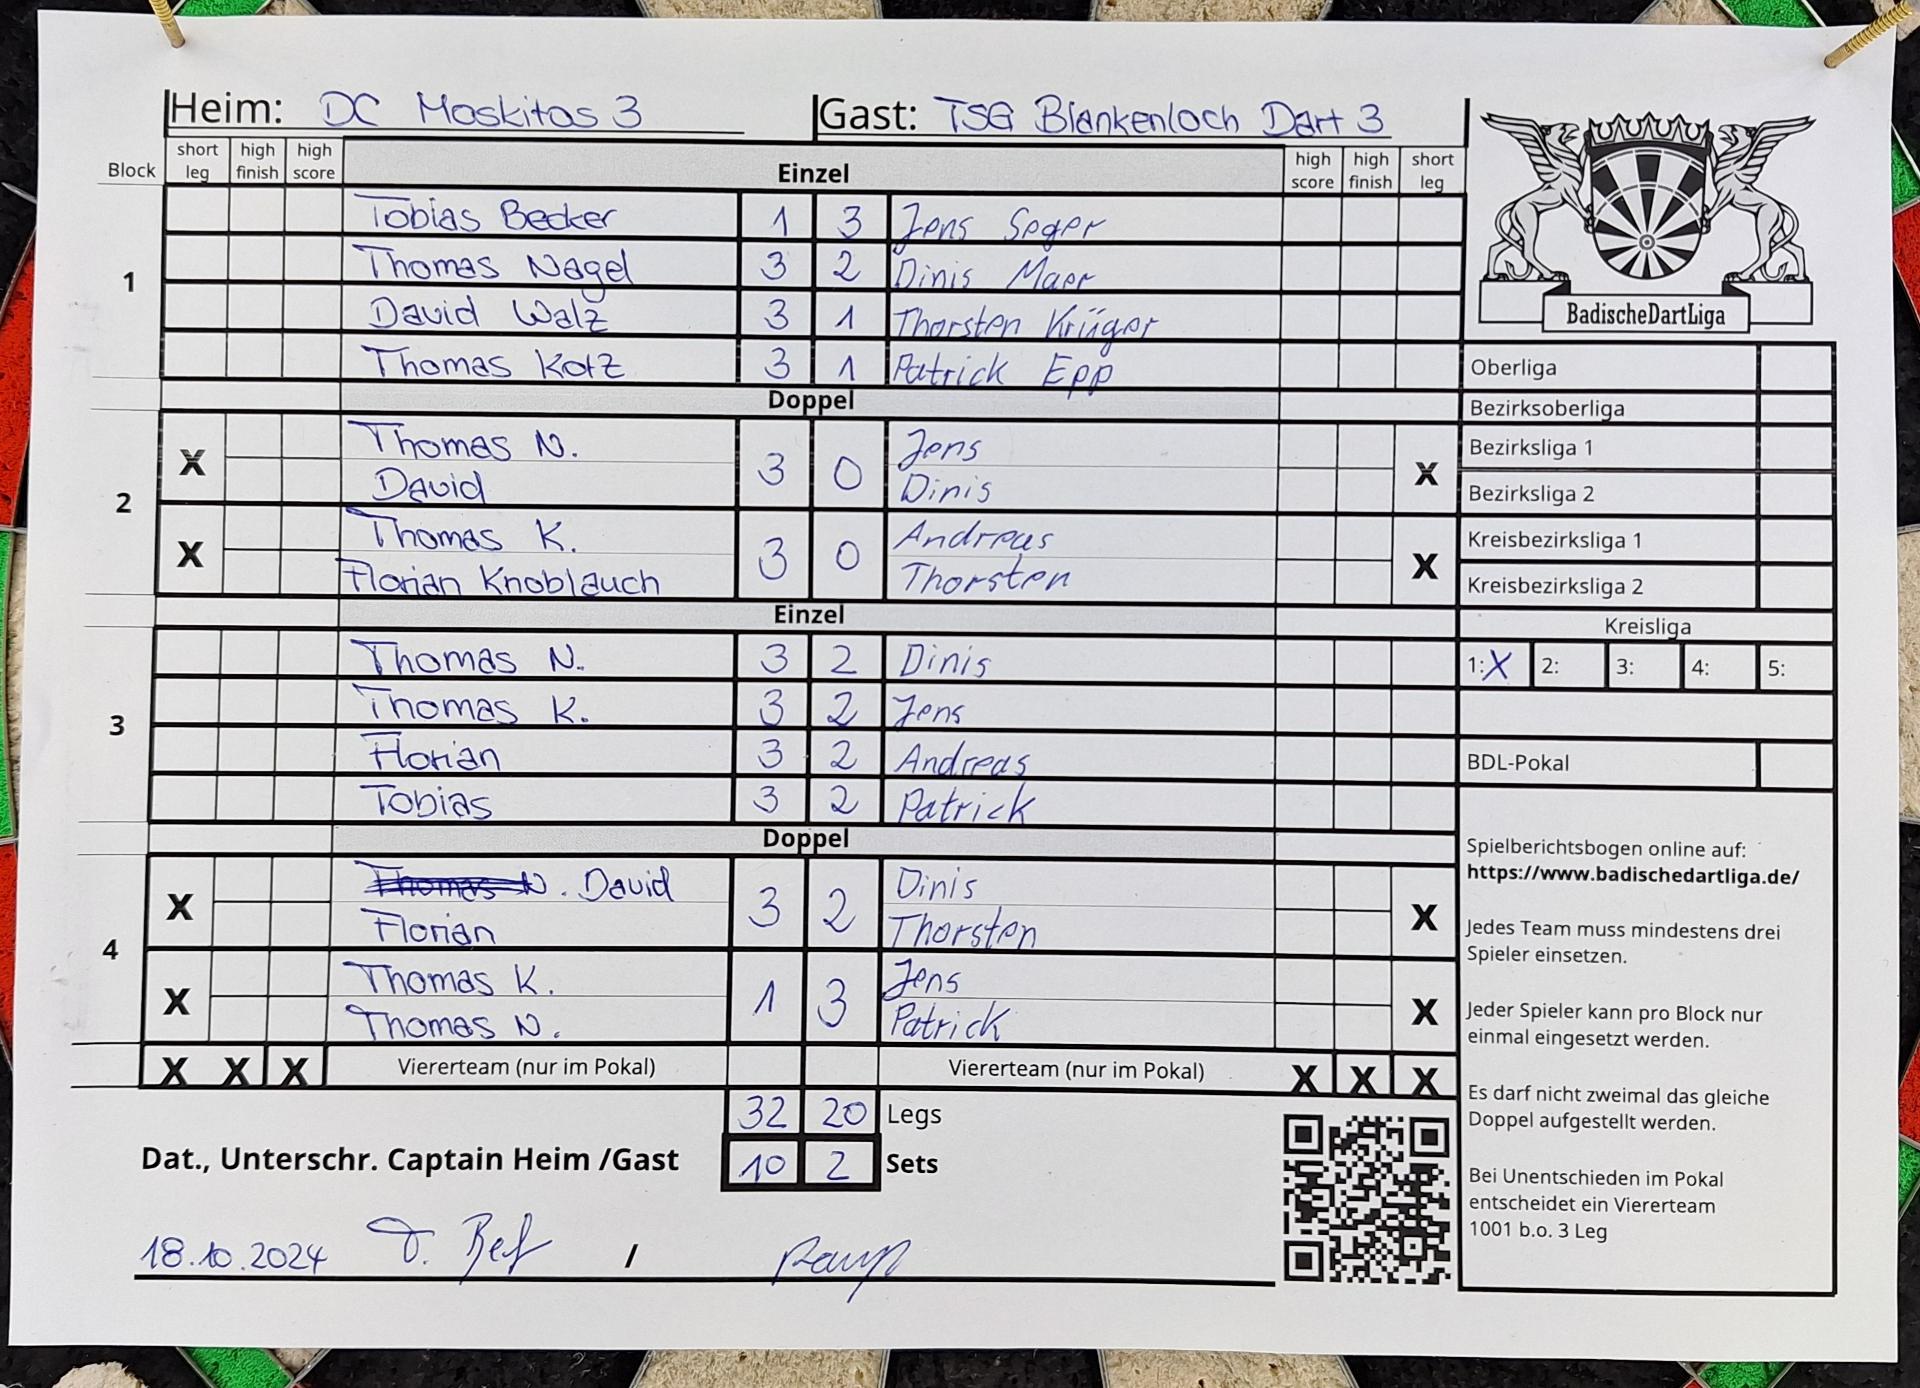 Heim: DC Moskitos 3 Gast: TSG Blankenloch Dart 3
Block short leg high finish high score Einzel high score high finish short leg
1
Tobias Becker 1 3 Jens Seger
Thomas Nagel 3 2 Dinis Maer
David Walz 3 1 Thorsten Krüger
Thomas Kotz 3 1 Patrick Epp
Doppel
2
X Thomas N. 3 0 Jens X
David Dinis
X Thomas K. 3 0 Andreas X
Florian Knoblauch Thorsten
Einzel
3
Thomas N. 3 2 Dinis
Thomas K. 3 2 Jens
Florian 3 2 Andreas
Tobias 3 2 Patrick
Doppel
4
X Thomas N. David 3 2 Dinis X
Florian Thorsten
X Thomas K. 1 3 Jens X
Thomas N. Patrick
X X X Vierterteam (nur im Pokal) Vierterteam (nur im Pokal) X X X
32 20 Legs
Dat., Unterschr. Captain Heim /Gast 10 2 Sets
18.10.2024 /
BadischeDartLiga
Oberliga
Bezirksoberliga
Bezirksliga 1
Bezirksliga 2
Kreisbezirksliga 1
Kreisbezirksliga 2
Kreisliga
1: X 2: 3: 4: 5:
BDL-Pokal
Spielberichtsbogen online auf:
https://www.badischedartliga.de/
Jedes Team muss mindestens drei
Spieler einsetzen.
Jeder Spieler kann pro Block nur
einmal eingesetzt werden.
Es darf nicht zweimal das gleiche
Doppel aufgestellt werden.
Bei Unentschieden im Pokal
entscheidet ein Vierterteam
1001 b.o. 3 Leg